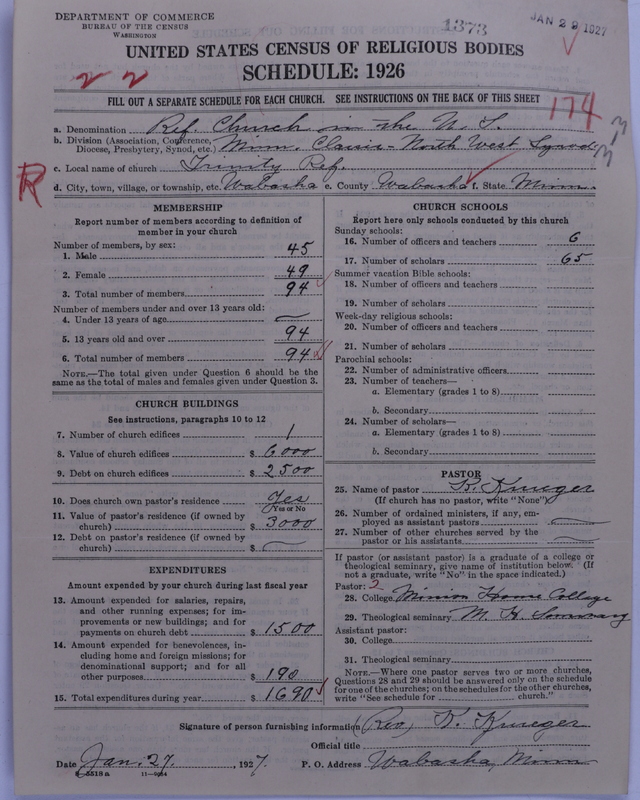 DEPARTMENT OF COMMERCE
BUREAU OF THE CENSUS
WASHINGTON
1373
JAN 29 1927
UNITED STATES CENSUS OF RELIGIOUS BODIES
SCHEDULE: 1926
2 2
FILL OUT A SEPARATE SCHEDULE FOR EACH CHURCH. SEE INSTRUCTIONS ON THE BACK OF THIS SHEET
174
a. Denomination Ref. Church in the U. S.
b. Division (Association, Conference, Diocese, Presbytery, Synod, etc.) Minn. Classis - North West Synod
c. Local name of church Trinity Ref.
R
d. City, town, village, or township, etc. Wabasha e. County Wabasha f. State Minn.
MEMBERSHIP
Report number of members according to definition of
member in your church
Number of members, by sex:
1. Male 45
2. Female 49
3. Total number of members 94
Number of members under and over 13 years old:
4. Under 13 years of age
5. 13 years old and over 94
6. Total number of members 94
NOTE.—The total given under Question 6 should be
same as the total of males and females given under Question 3.
CHURCH BUILDINGS
See instructions, paragraphs 10 to 12
7. Number of church edifices 1
8. Value of church edifices $ 6000
9. Debt on church edifices $ 2500
10. Does church own pastor's residence Yes
(Yes or No
11. Value of pastor's residence (if owned by
church) $ 3000
12. Debt on pastor's residence (if owned by
church) $
EXPENDITURES
Amount expended by your church during last fiscal year
13. Amount expended for salaries, repairs,
and other running expenses; for im-
provements or new buildings; and for
payments on church debt $ 1500
14. Amount expended for benevolences, in-
cluding home and foreign missions; for
denominational support; and for all
other purposes $ 190
15. Total expenditures during year $ 1690
CHURCH SCHOOLS
Report here only schools conducted by this church
Sunday schools:
16. Number of officers and teachers 6
17. Number of scholars 65
Summer vacation Bible schools:
18. Number of officers and teachers
19. Number of scholars
Week-day religious schools:
20. Number of officers and teachers
21. Number of scholars
Parochial schools:
22. Number of administrative officers
23. Number of teachers—
a. Elementary (grades 1 to 8)
b. Secondary
24. Number of scholars—
a. Elementary (grades 1 to 8)
b. Secondary
PASTOR
25. Name of pastor K. Krueger
(If church has no pastor, write "None")
26. Number of ordained ministers, if any, em-
ployed as assistant pastors
27. Number of other churches served by the
pastor or his assistants
If pastor (or assistant pastor) is a graduate of a college or
theological seminary, give name of institution below. (If
not a graduate, write "No" in the space indicated.)
Pastor: 2
28. College Mission House College
29. Theological seminary M. H.
Assistant pastor:
30. College
31. Theological seminary
NOTE.—Where one pastor serves two or more churches,
Questions 28 and 29 should be answered only on the schedule
for one of the churches; on the schedules for the other churches,
write "See schedule for church."
Signature of person furnishing information (Rev) K. Krueger
Official title
Date Jan. 27, 1927. P. O. Address Wabasha, Minn
8-5518a 11-9054